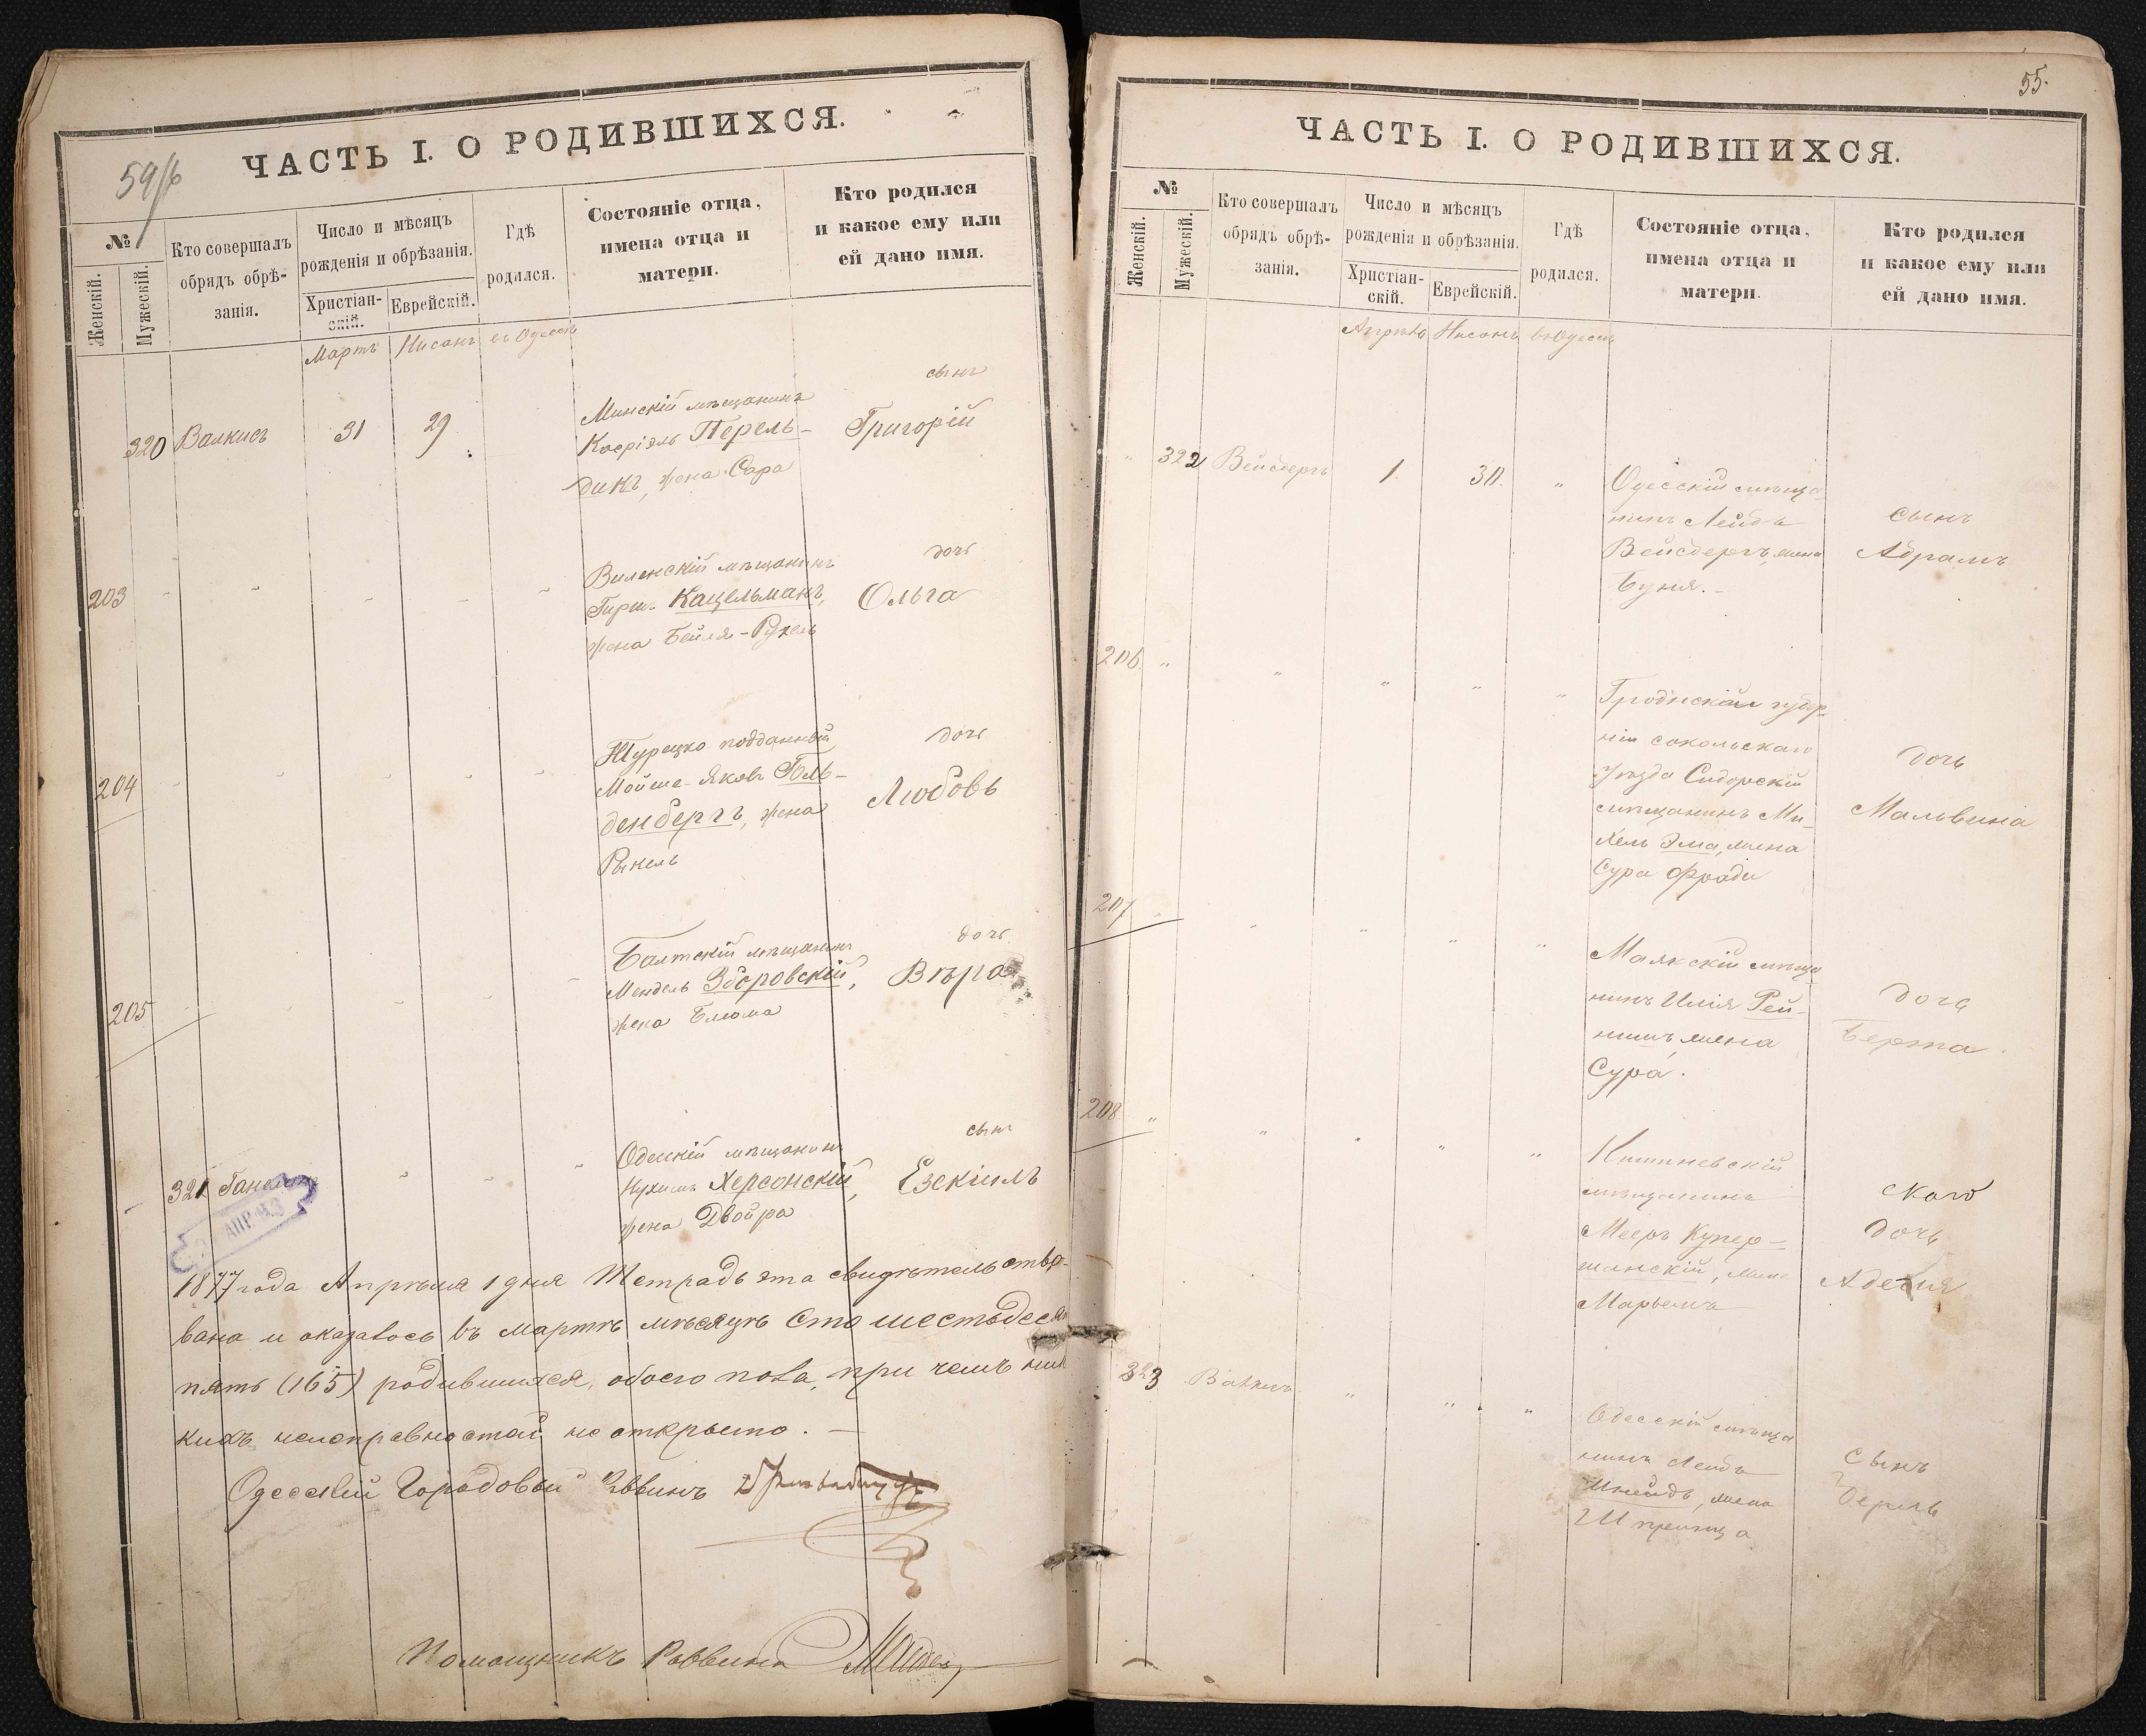 59/6
ЧАСТЬ I. О РОДИВШИХСЯ.
№
Женскій.
Мужескій.
Кто совершалъ
обрядъ обрѣ-
занія.
Число и мѣсяцъ
рожденія и обрѣзанія.
Христіан-
скій.
Еврейскій.
Гдѣ
родился.
Состояніе отца,
имена отца и
матери.
Кто родился
и какое ему или
ей дано имя.
Мартъ Нисанъ въ Одессѣ
320 Валкисъ 31 29
Минскій мѣщанинъ
Касріэль Перель-
дикъ, жена Сара
сынъ
Григорій
203
Виленскій мѣщанинъ
Гирш. Кацельманъ,
жена Бейля-Рухель
дочь
Ольга
204
Турецко подданный
Мойше-Яковъ Голь-
денбергъ, жена
Рыкель
дочь
Любовь
205
Балтскій мѣщанинъ
Мендель Зборовскій,
жена Блюма
дочь
Вѣра
321
Одесскій мѣщанинъ
Херсонскій,
жена Двойра
сынъ
Езекіиль
АПР. 93
1877 года Апрѣля 1 дня Тетрадь эта свидѣтельство-
вана и оказалось въ мартѣ мѣсяцѣ сто шестьдесятъ
пять (165) родившихся, обоего пола, при чемъ ника
кихъ неисправностей не открыто. —
Одесскій Городовой Раввинъ
Помощникъ Раввина
55.
ЧАСТЬ I. О РОДИВШИХСЯ.
№
Женскій.
Мужескій.
Кто совершалъ
обрядъ обрѣ-
занія.
Число и мѣсяцъ
рожденія и обрѣзанія.
Христіан-
скій.
Еврейскій.
Гдѣ
родился.
Состояніе отца,
имена отца и
матери.
Кто родился
и какое ему или
ей дано имя.
Апрѣль Нисанъ въ Одессѣ
" 322 Вейсбергъ 1. 30. "
Одесскій мѣща-
нинъ Лейба
Вейсбергъ, жена
Буня. -
сынъ
Абрамъ
206. " " " " "
Гродненской губер-
ніи сокольскаго
уѣзда Сидорскій
мѣщанинъ Ми-
хель Эма, жена
Сура Фради
дочь
Мальвина
207
Маякскій мѣща-
нинъ Илія Рей-
нишъ, жена
Сура.
дочь
Берта.
208 " " " " "
Кишиневскій
мѣщанинъ
Мееръ Купер-
жена
Марьемъ
дочь
Аделия
323 Валкисъ " " "
Одесскій мѣща
нинъ Лейба
Шнейдъ, жена
Шпринца
Сынъ
Берль